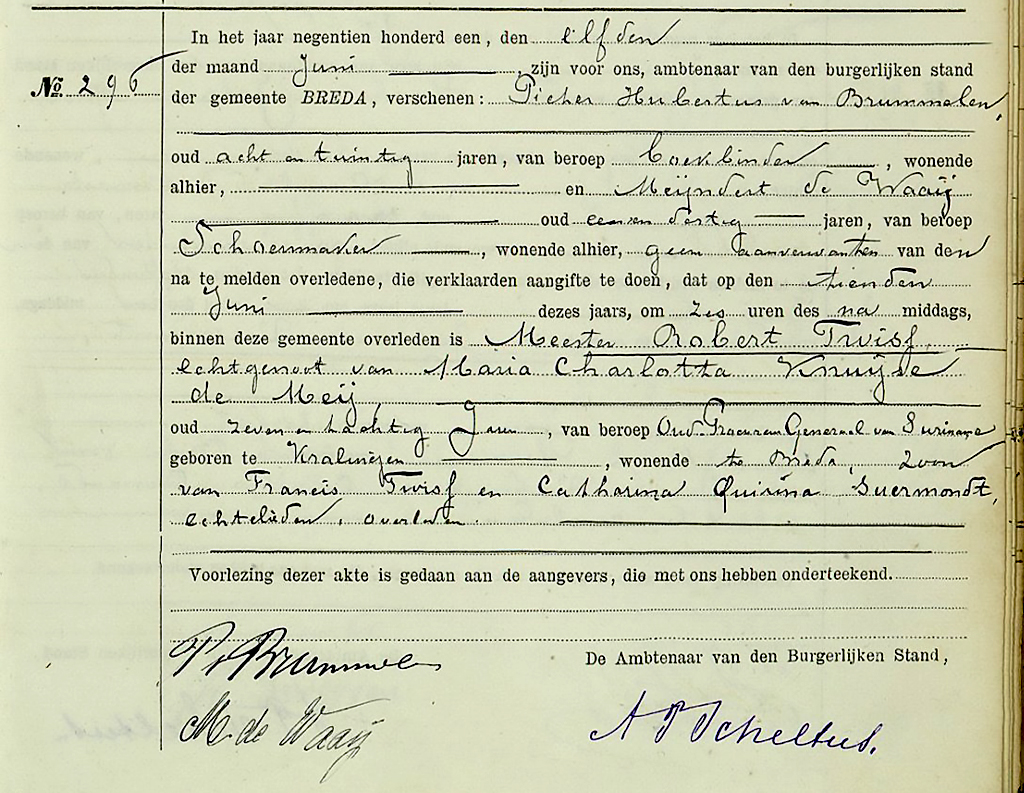 In het jaar negentien honderd een, den elfden
No. 296
der maand Juni, zijn voor ons, ambtenaar van den burgerlijken stand
der gemeente BREDA, verschenen: Pieter Hubertus van Brummelen,
oud acht en twintig jaren, van beroep boekbinder, wonende
alhier, en Meijndert de Waaij
oud een en dertig jaren, van beroep
Schoenmaker, wonende alhier, geen aanverwanten van den
na te melden overledene, die verklaarden aangifte te doen, dat op den tienden
Juni dezes jaars, om zes uren des na middags,
binnen deze gemeente overleden is Meester Robert Twiss,
echtgenoot van Maria Charlotta Knuijse
de Meij,
oud zeven en tachtig Jaren, van beroep Oud-Procureur Generaal van Suriname
geboren te Kralingen, wonende te Breda, zoon
van Francis Twiss en Catharina Quirina Suermondt,
echtelieden, overleden.
Voorlezing dezer akte is gedaan aan de aangevers, die met ons hebben onderteekend.
De Ambtenaar van den Burgerlijken Stand,
P v Brummelen
M. de Waaij
A P Scheltus.